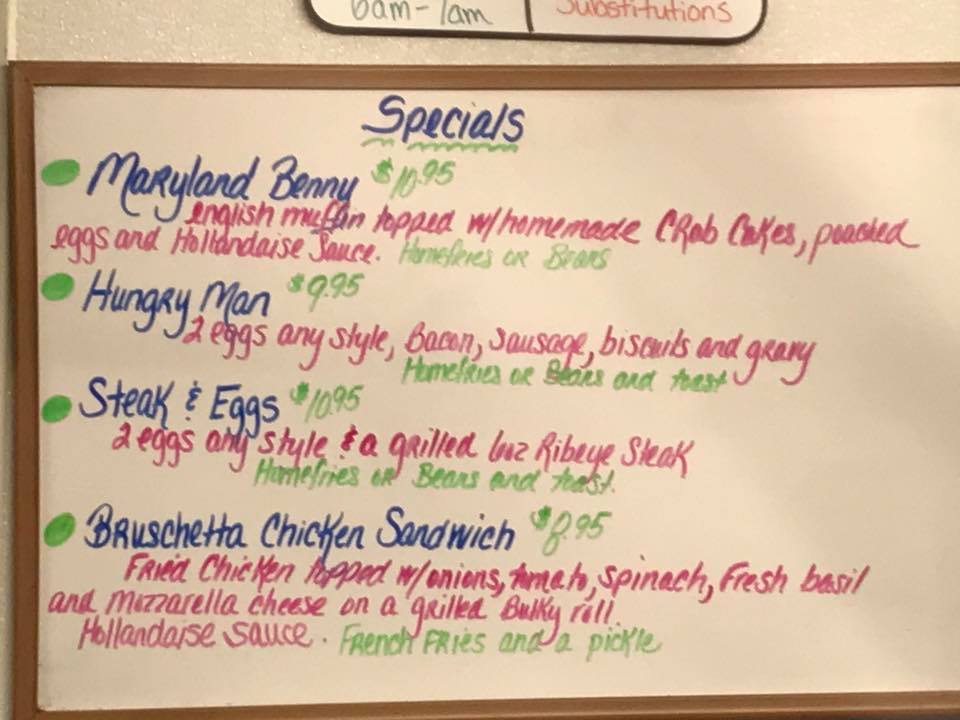 6am-1am
Substitutions
Specials
Maryland Benny $10.95
english muffin topped w/homemade CRab Cakes, poached
eggs and Hollandaise Sauce. Homefries or Beans
Hungry Man $9.95
2 eggs any style, Bacon, Sausage, biscuits and gravy
Homefries or Beans and toast
Steak & Eggs $10.95
2 eggs any style & a grilled 6oz Ribeye Steak
Homefries or Beans and toast.
Bruschetta Chicken Sandwich $8.95
Fried Chicken topped w/onions, tomato, spinach, Fresh basil
and Mozzarella cheese on a grilled Bulky roll.
Hollandaise sauce. French Fries and a pickle